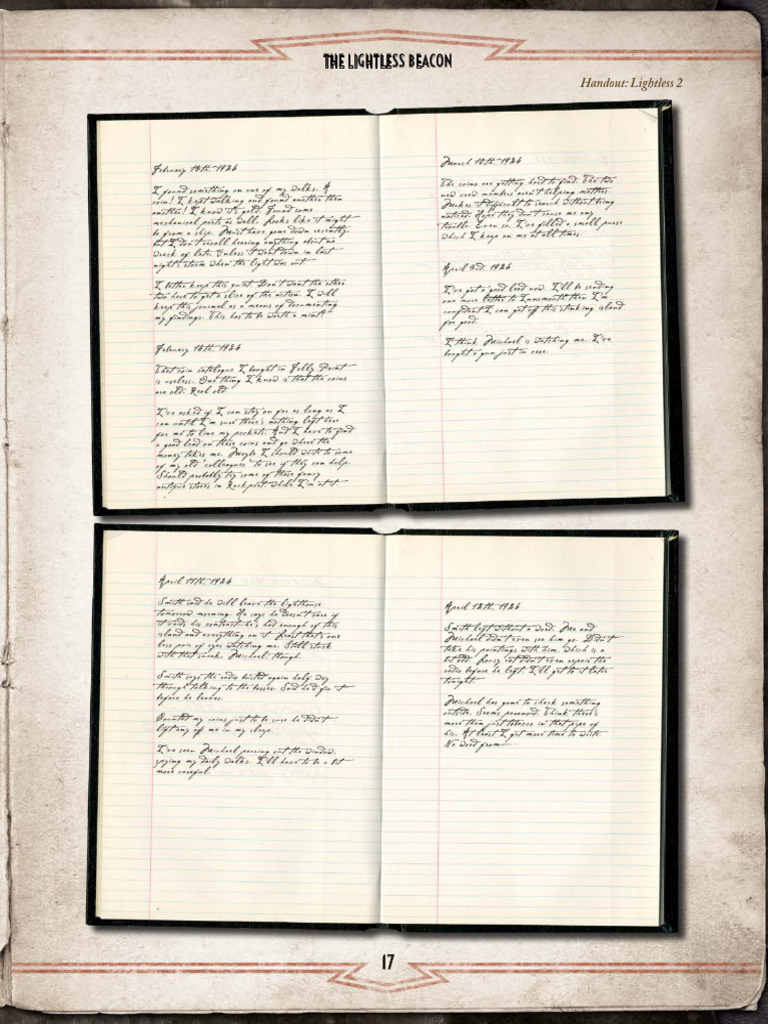 THE LIGHTLESS BEACON
Handout: Lightless 2
February 13th, 1926
I found something on one of my walks. A
coin! I kept walking and found another then
another! I know it's gold. Found some
mechanical parts as well. Looks like it might
be from a ship. Must have gone down recently,
but I don't recall hearing anything about no
wreck of late. Unless it went down in last
night's storm when the light was out.
I better keep this quiet. Don't want the other
two here to get a slice of the action. I will
keep this journal as a means of documenting
my findings. This has to be worth a mint!
February 16th, 1926
That coin catalogue I bought in Folly Point
is useless. One thing I know is that the coins
are old. Real old.
I've asked if I can stay on for as long as I
can until I'm sure there's nothing left here
for me to line my pockets. And I have to find
a good lead on these coins and go where the
money takes me. Maybe I should write to some
of my old "colleagues" to see if they can help.
Should probably try some of those fancy
antique stores in Rockport while I'm at it.
March 10th, 1926
The coins are getting hard to find. The two
new crew members aren't helping matters.
Makes it difficult to search without being
noticed. Hope they don't cause me any
trouble. Even so, I've filled a small purse
which I keep on me at all times.
April 3rd, 1926
I've got a good lead now. I'll be sending
one more letter to Innsmouth then I'm
confident I can get off this stinking island
for good.
I think Michael is watching me. I've
bought a gun just in case.
April 17th, 1926
Smith said he will leave the lighthouse
tomorrow morning. He says he doesn't care if
it voids his contract—he's had enough of this
island and everything on it. Least that's one
less pair of eyes watching me. Still stuck
with that sneak, Michael, though.
Smith says the radio busted again half way
through talking to the bosses. Said he'd fix it
before he leaves.
Counted my coins just to be sure he didn't
lift any off me in my sleep.
I've seen Michael peering out the window,
spying my daily walks. I'll have to be a bit
more careful.
April 18th, 1926
Smith left without a word. Me and
Michael didn't even see him go. Didn't
take his paintings with him, which is a
bit odd. Lousy rat didn't even repair the
radio before he left. I'll get to it later
tonight.
Michael has gone to check something
outside. Seems paranoid. Think there's
more than just tobacco in that pipe of
his. At least I get more time to write.
No word from
17